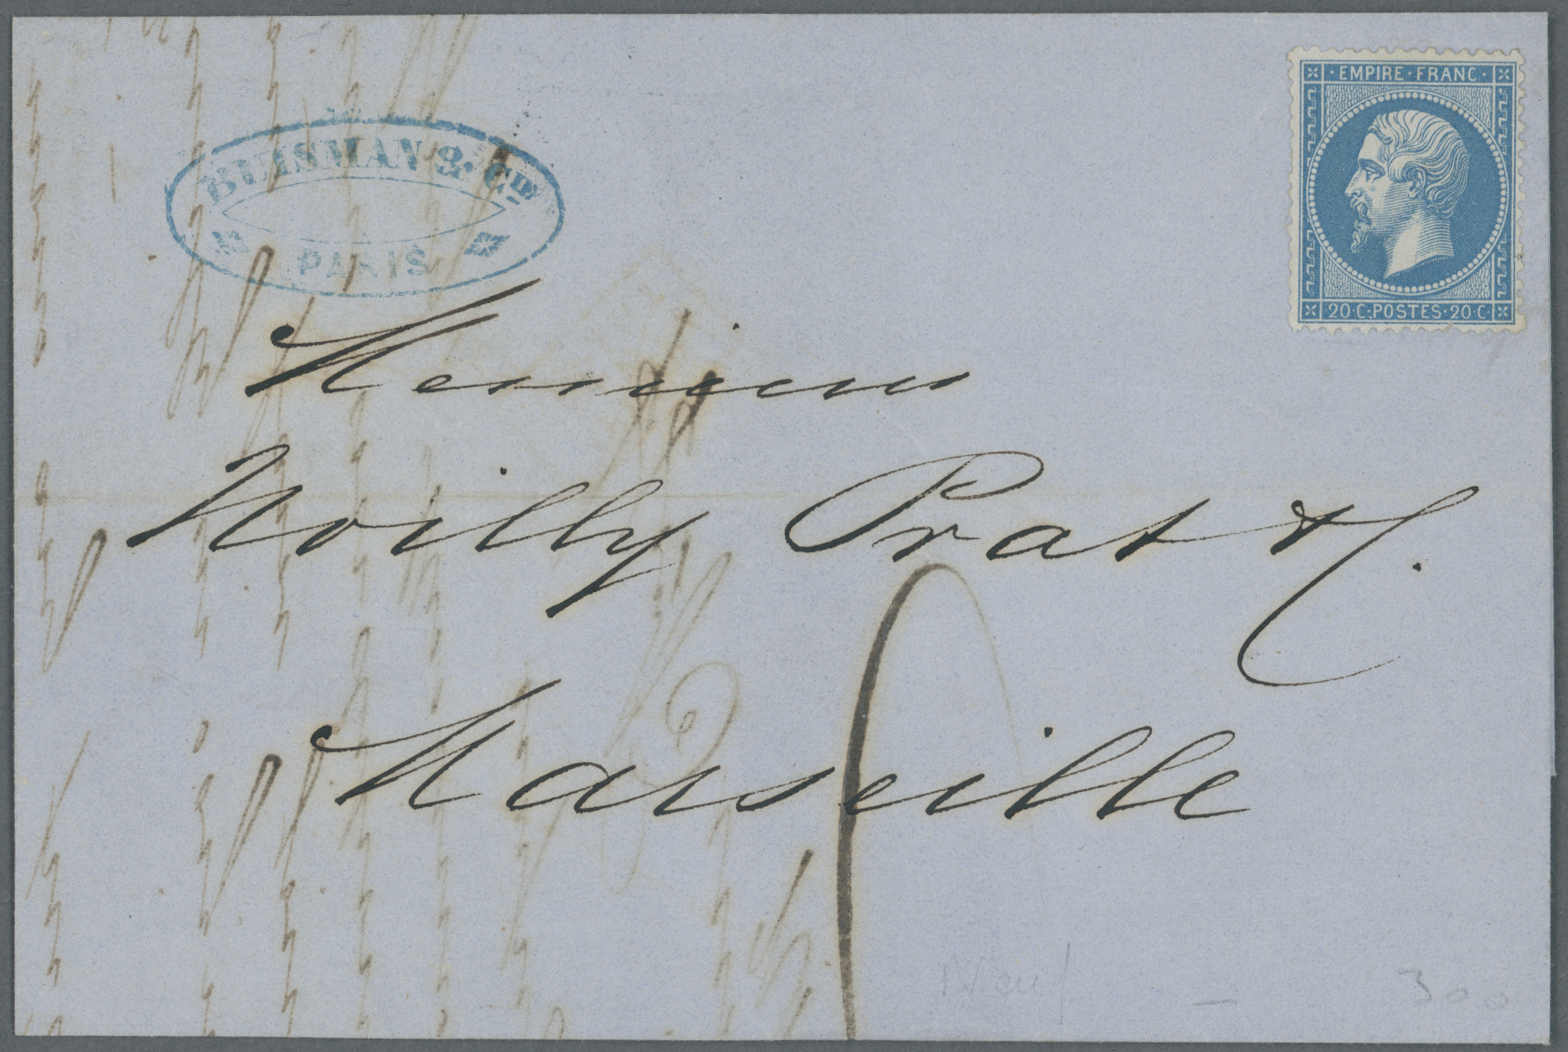 EMPIRE · FRANC
20 C · POSTES · 20 C
& Cie
PARIS
Messieurs
Noilly Prat & C.
Marseille
300